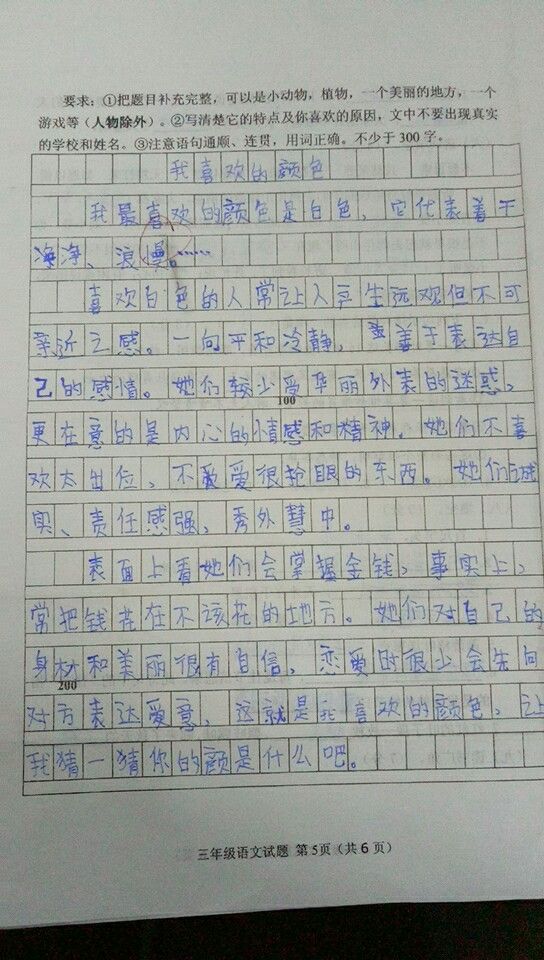 要求：①把题目补充完整，可以是小动物，植物，一个美丽的地方，一个
游戏等（人物除外）。②写清楚它的特点及你喜欢的原因，文中不要出现真实
的学校和姓名。③注意语句通顺、连贯，用词正确。不少于300字。
我喜欢的颜色
我最喜欢的颜色是白色，它代表着干
净、浪慢。……
喜欢白色的人常让人产生远观但不可
亲近之感。一向平和冷静，善于表达自
己的感情。她们较少受华丽外表的迷惑，
100
更在意的是内心的情感和精神。她们不喜
欢太出位、不爱很抢眼的东西。她们诚
实、责任感强、秀外慧中。
表面上看她们会掌握金钱，事实上，
常把钱花在不该花的地方。她们对自己的
身材和美丽很有自信，恋爱时很少会先向
200
对方表达爱意，这就是我喜欢的颜色，让
我猜一猜你的颜是什么吧。
三年级语文试题 第5页（共6页）